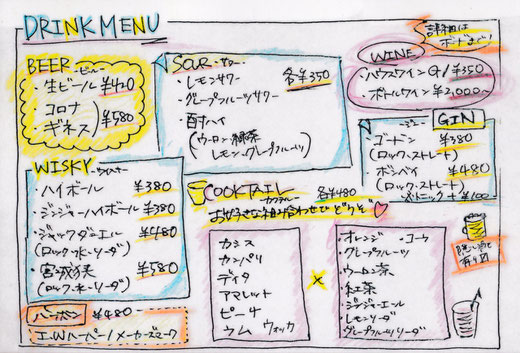 DRINK MENU
詳細は
ボードまで!
BEER -ビール-
・生ビール ¥420
・コロナ
・ギネス ¥580
SOUR -サワー-
・レモンサワー 各¥350
・グレープフルーツサワー
・酎ハイ
(ウーロン・緑茶
レモン・グレープフルーツ)
WINE
・ハウスワイン G/¥350
・ボトルワイン ¥2,000~
GIN
・ゴードン ¥380
(ロック・ストレート)
・ボンベイ ¥480
(ロック・ストレート)
トニック+¥100
WISKY -ウイスキー-
・ハイボール ¥380
・ジンジャーハイボール ¥380
・ジャックダニエル ¥480
(ロック・水・ソーダ)
・富士 ¥580
(ロック・水・ソーダ)
バーボン ¥480
I.Wハーパー/メーカーズマーク
COCKTAIL カクテル 各¥480
お好きな組み合わせでどうぞ♡
カシス
カンパリ
ディタ
アマレット
ピーチ
ラム ウォッカ
×
・オレンジ ・コーラ
・グレープフルーツ
・ウーロン茶
・紅茶
・ジンジャーエール
・レモンソーダ
・グレープフルーツソーダ
有り